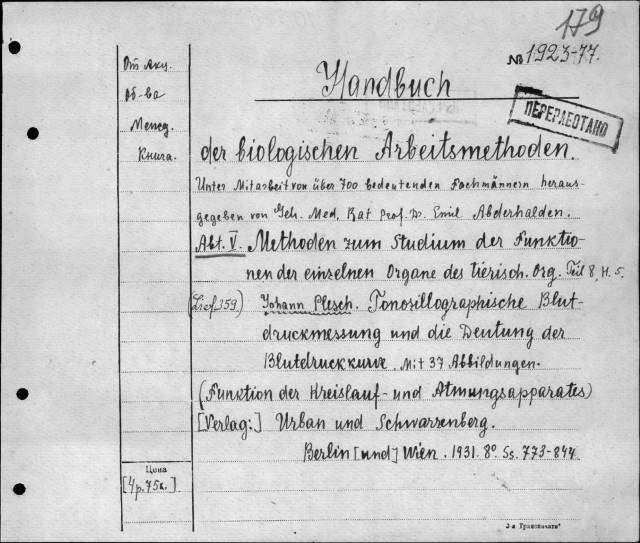 179
№ 1923-77.
Handbuch
ПЕРЕРАБОТАНО
От Акц.
Об-ва
Межд.
Книга.
der biologischen Arbeitsmethoden.
Unter Mitarbeit von über 700 bedeutenden Fachmännern heraus-
gegeben von Geh. Med. Rat Prof. Dr. Emil Abderhalden.
Abt. V. Methoden zum Studium der Funktio-
nen der einzelnen Organe des tierisch. Org. Teil 8, H. 5.
(Lief. 359) Johann Plesch. Tonosillographische Blut-
druckmessung und die Deutung der
Blutdruckkurve. Mit 37 Abbildungen.
(Funktion der Kreislauf- und Atmungsapparates)
[Verlag:] Urban und Schwarzenberg.
Berlin [und] Wien. 1931. 8º. Ss. 773-844
Цена
[4 р. 75 к.]
3-я Транспечати